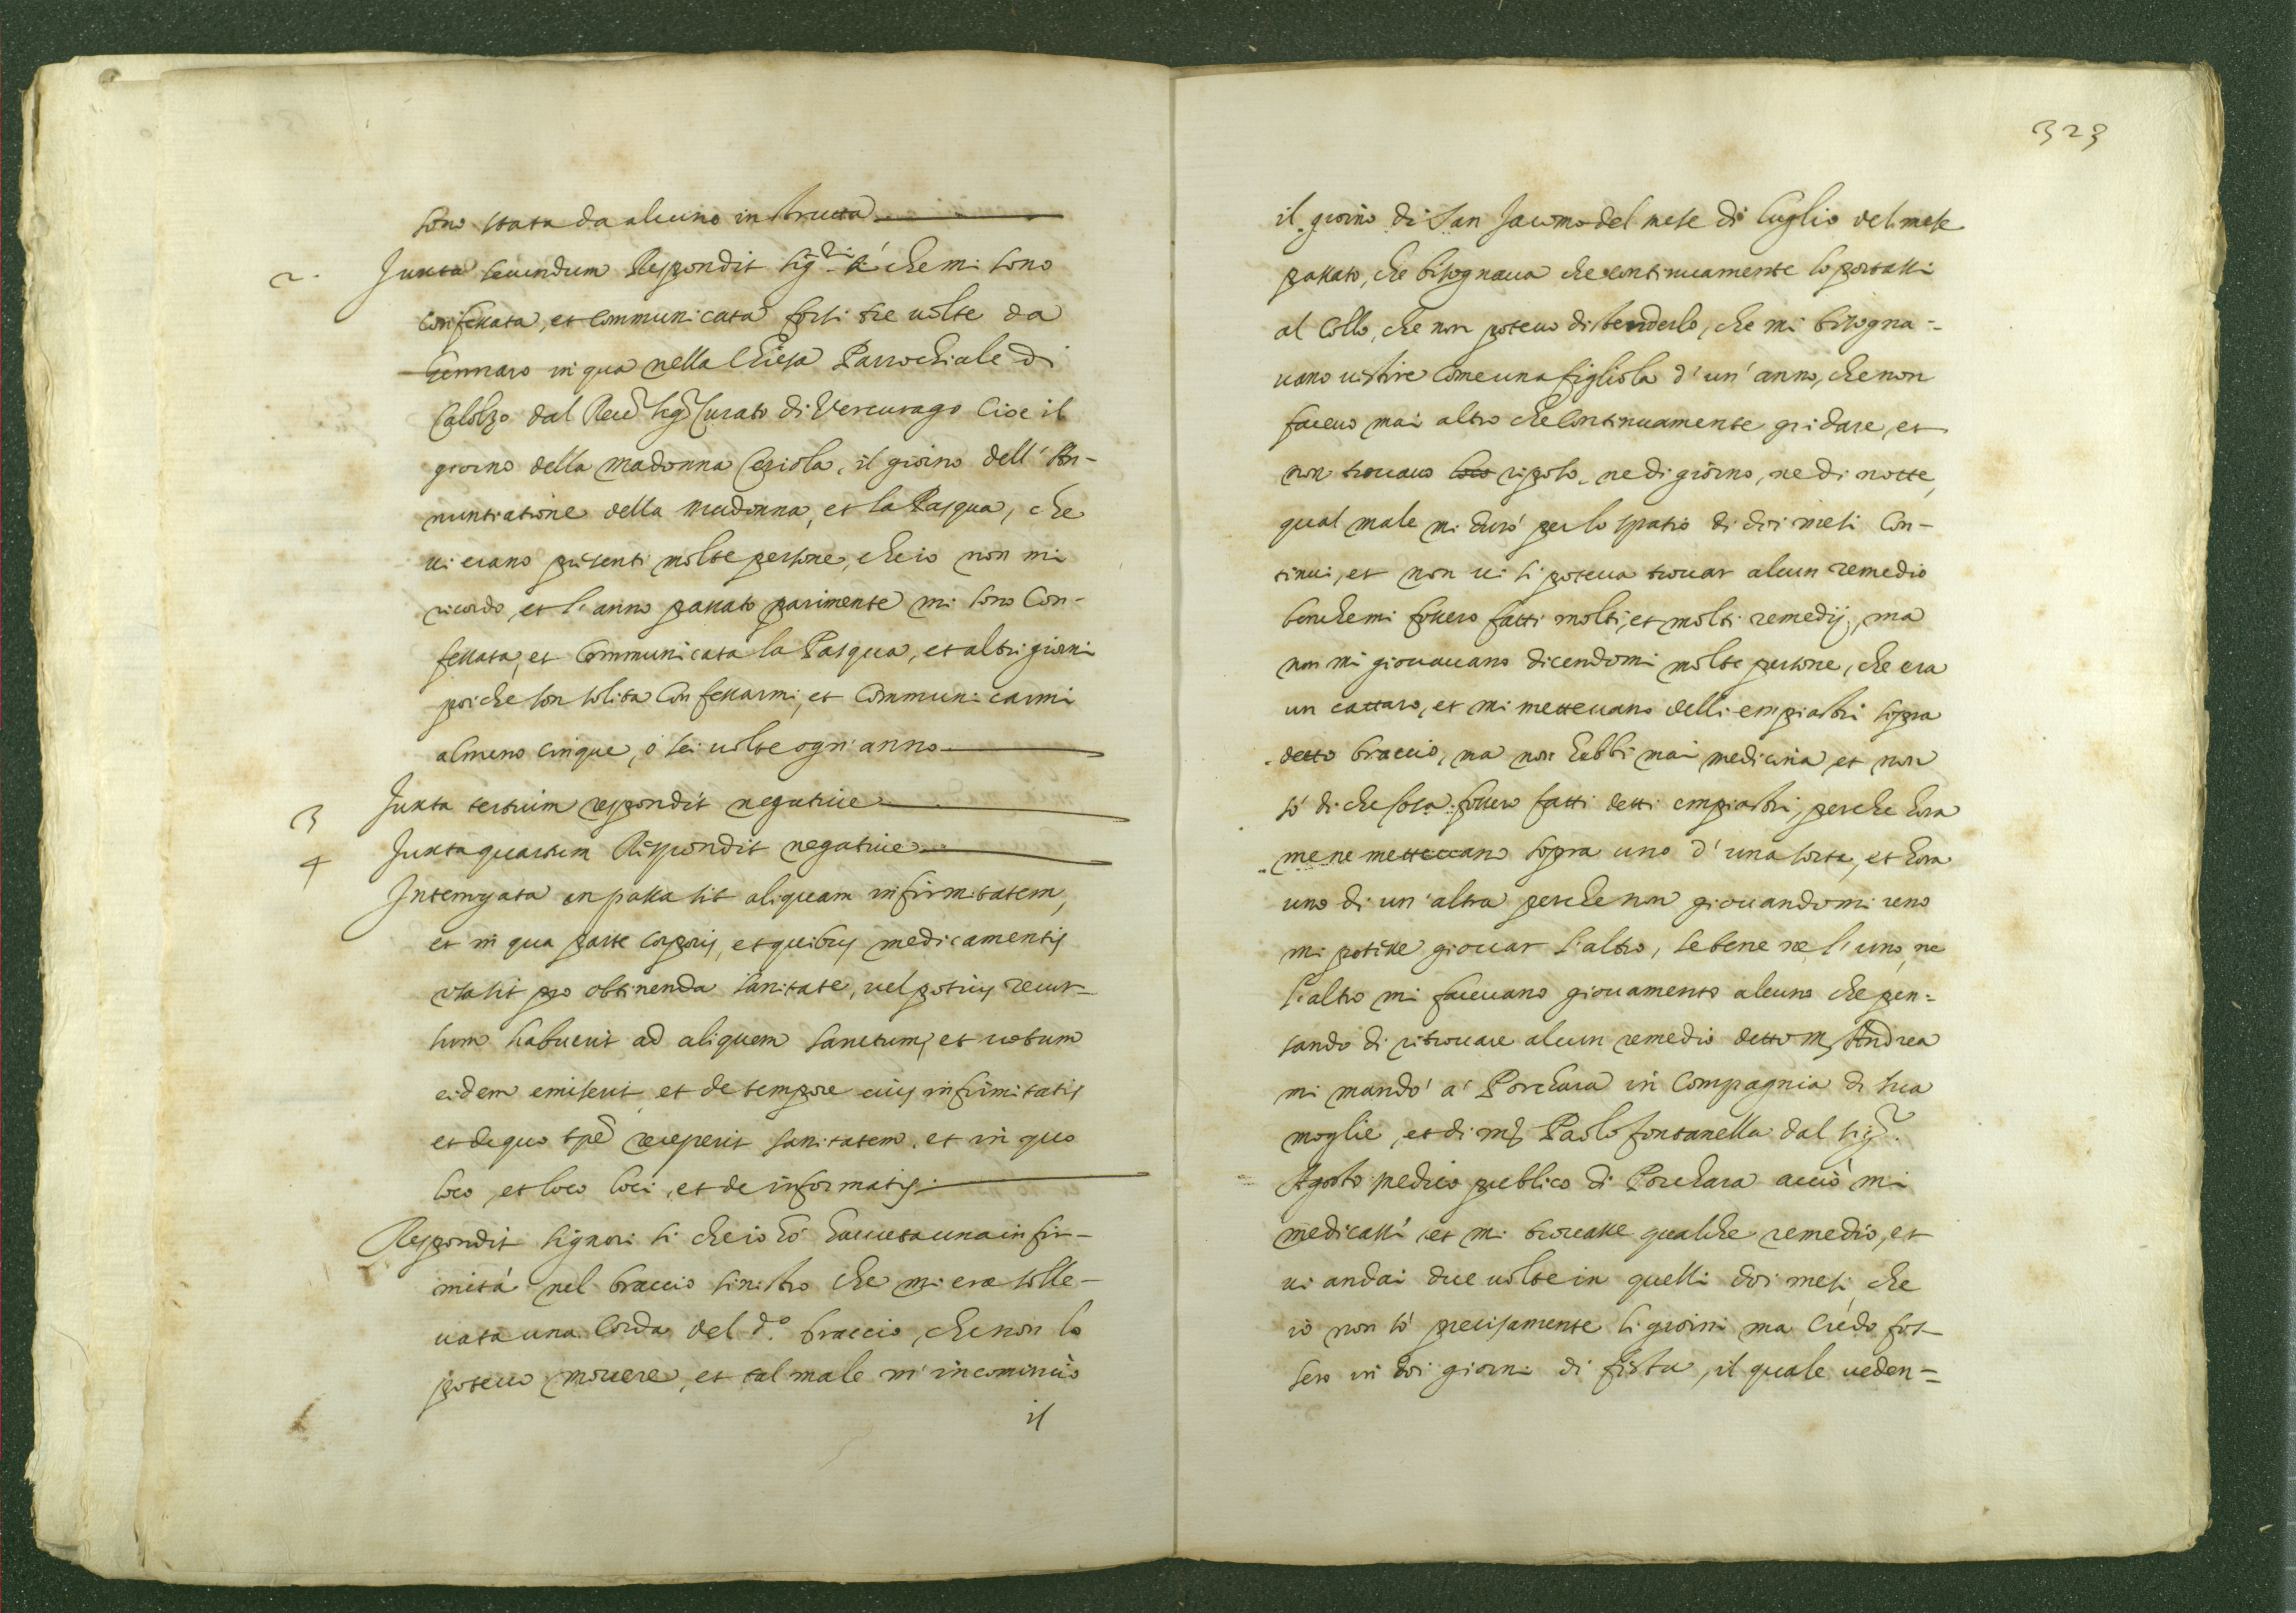 sono stata da alcuno instrutta
2. Juxta secundum Respondit sig.ri si che mi sono
confessata, et communicata forsi tre uolte da
Gennaro in qua nella Chiesa Parrochiale di
Calolzo dal Reu. sig. Curato di Vercurago cioe il
giorno della madonna Ceriola, il giorno dell' An-
nuntiatione della Madonna, et la Pasqua, che
ui erano presenti molte persone, che io non mi
ricordo, et l'anno passato parimente mi sono Con-
fessata, et Communicata la Pasqua, et altri giorni
poiche son solita Confessarmi, et Communicarmi
almeno cinque, ó sei uolte ogn' anno
3 Juxta tertium respondit negatiue
4 Juxta quartum Respondit negatiue
Interrogata an passa sit aliquam infirmitatem,
et in qua parte corporis, et quibus medicamentis
usa sit pro obtinenda sanitate, uel potius recur-
sum habuerit ad aliquem sanctum, et uotum
eidem emiserit et de tempore eius infirmitatis
et de quo tpe receperit sanitatem, et in quo
loco, et loco loci, et de informatis.
Respondit signori si che io hó hauuta una infir-
mitá nel braccio sinistro che mi era solle-
uata una corda del d.o braccio, che non lo
poteuo mouere, et tal male m' incominciò
il
323
il giorno di San Jacomo del mese di luglio del mese
passato, che bisognaua che continuamente lo portassi
al collo, che non poteuo distenderlo, che mi bisogna=
uano uestire come una figliola d'un' anno, che non
faceuo mai altro che continuamente gridare, et
non trouauo loco riposo, ne di giorno, ne di notte,
qual male mi duró per lo spatio di doi mesi con-
tinui, et non ui si poteua trouar alcun remedio
benche mi fossero fatti molti, et molti remedij, ma
non mi giouauano dicendomi molte persone, che era
un cattaro, et mi metteuano delli empiastri sopra
detto braccio, ma non hebbi mai medicina et non
só di che sosa fossero fatti detti empiastri, perche hora
me ne metteuano sopra uno d'una sorte, et hora
uno di un'altra perche non giouandomi uno
mi potesse giouar l'altro, se bene ne l'uno, ne
l'altro mi faceuano giouamento alcuno che pen=
sando di ritrouare alcun remedio detto m. Andrea
mi mandó á Porchara in compagnia di sua
moglie, et di m. Paolo fontanella dal sig.r
Agosto medico publico di Porchara acciò mi
medicasse et mi trouasse qualche remedio, et
ui andai due uolte in quelli doi mesi che
io non só precisamente li giorni ma credo fos-
sero in doi giorni di festa, il quale ueden=